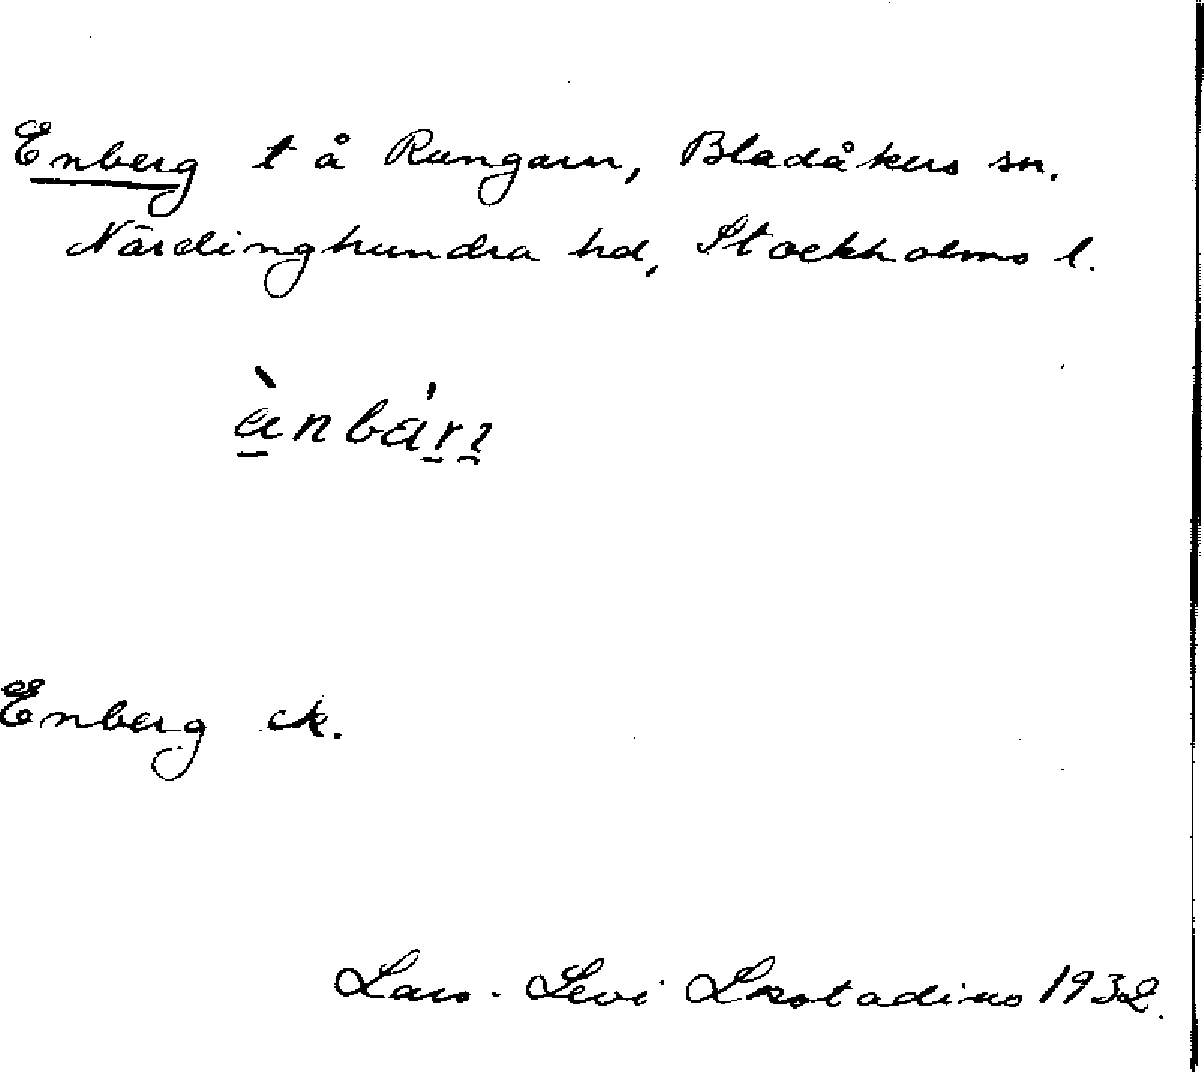 Enberg t å Rungarn, Bladåkers sn.
Närdinghundra hd, Stockholms l.
ànbár̤ı
Enberg ek.
Lars-Levi Læstadius 1932.